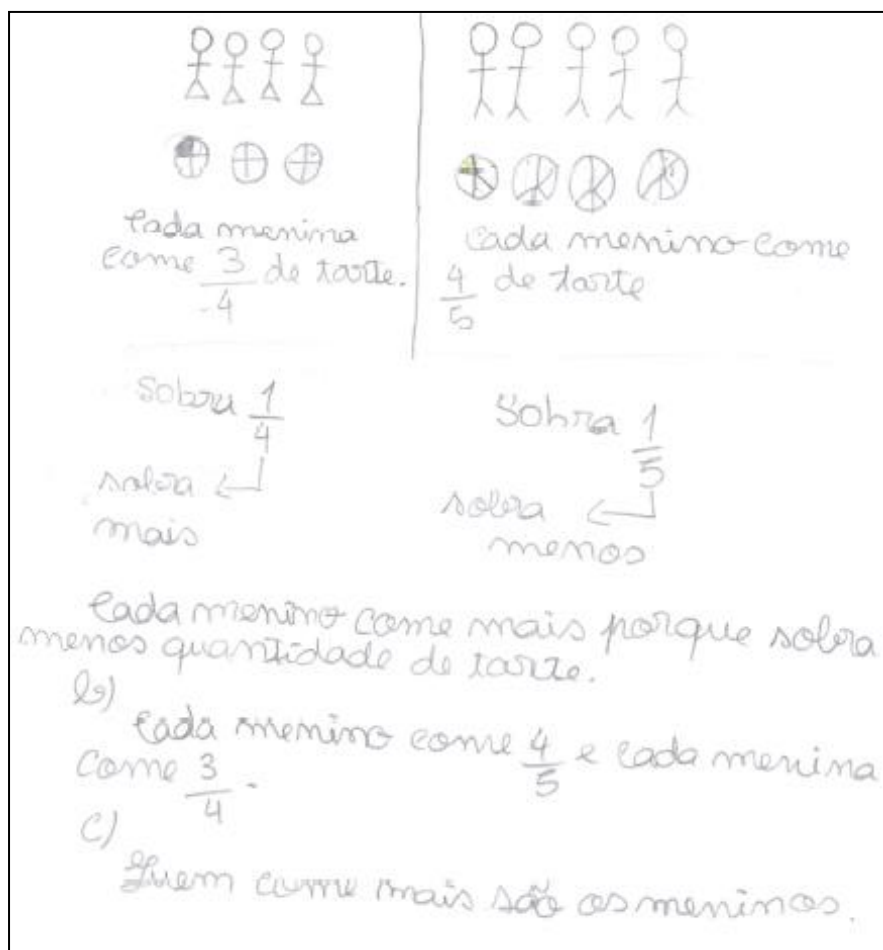 Cada menina
come 3/4 de tarte.
Cada menino come
4/5 de tarte
Sobra 1/4
sobra
mais
Sobra 1/5
sobra
menos
Cada menino come mais porque sobra
menos quantidade de tarte.
b)
Cada menino come 4/5 e cada menina
come 3/4.
c)
Quem come mais são os meninos.